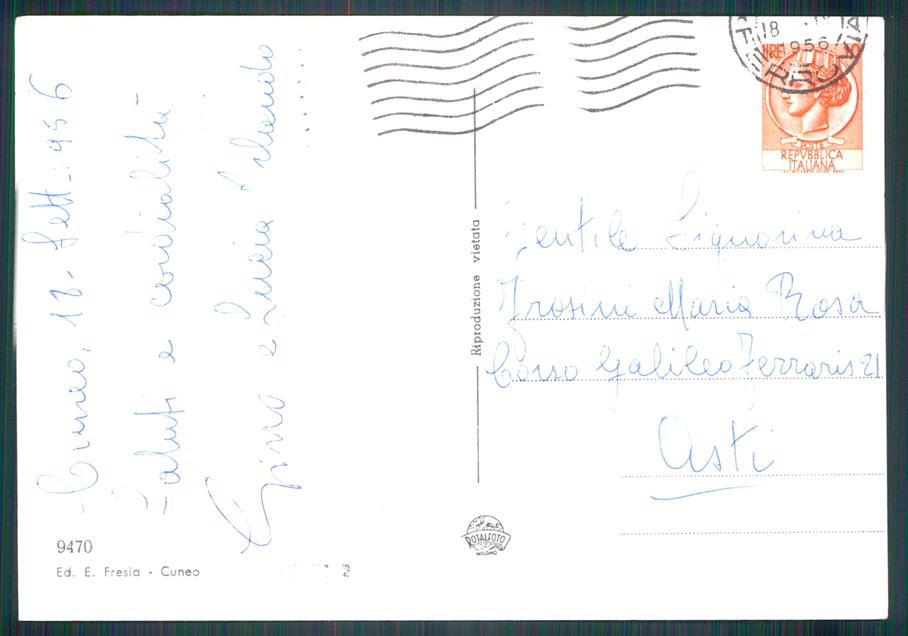 Cuneo, 18 - Sett - 956
Saluti e cordialità -
Gino e Lucia
18
1956
POSTE
REPVBBLICA
ITALIANA
Riproduzione vietata
Gentile Signorina
Frosini Maria Rosa
Corso Galileo Ferraris 21
Asti
9470
Ed. E. Fresia - Cuneo
ROTALFOTO
MILANO